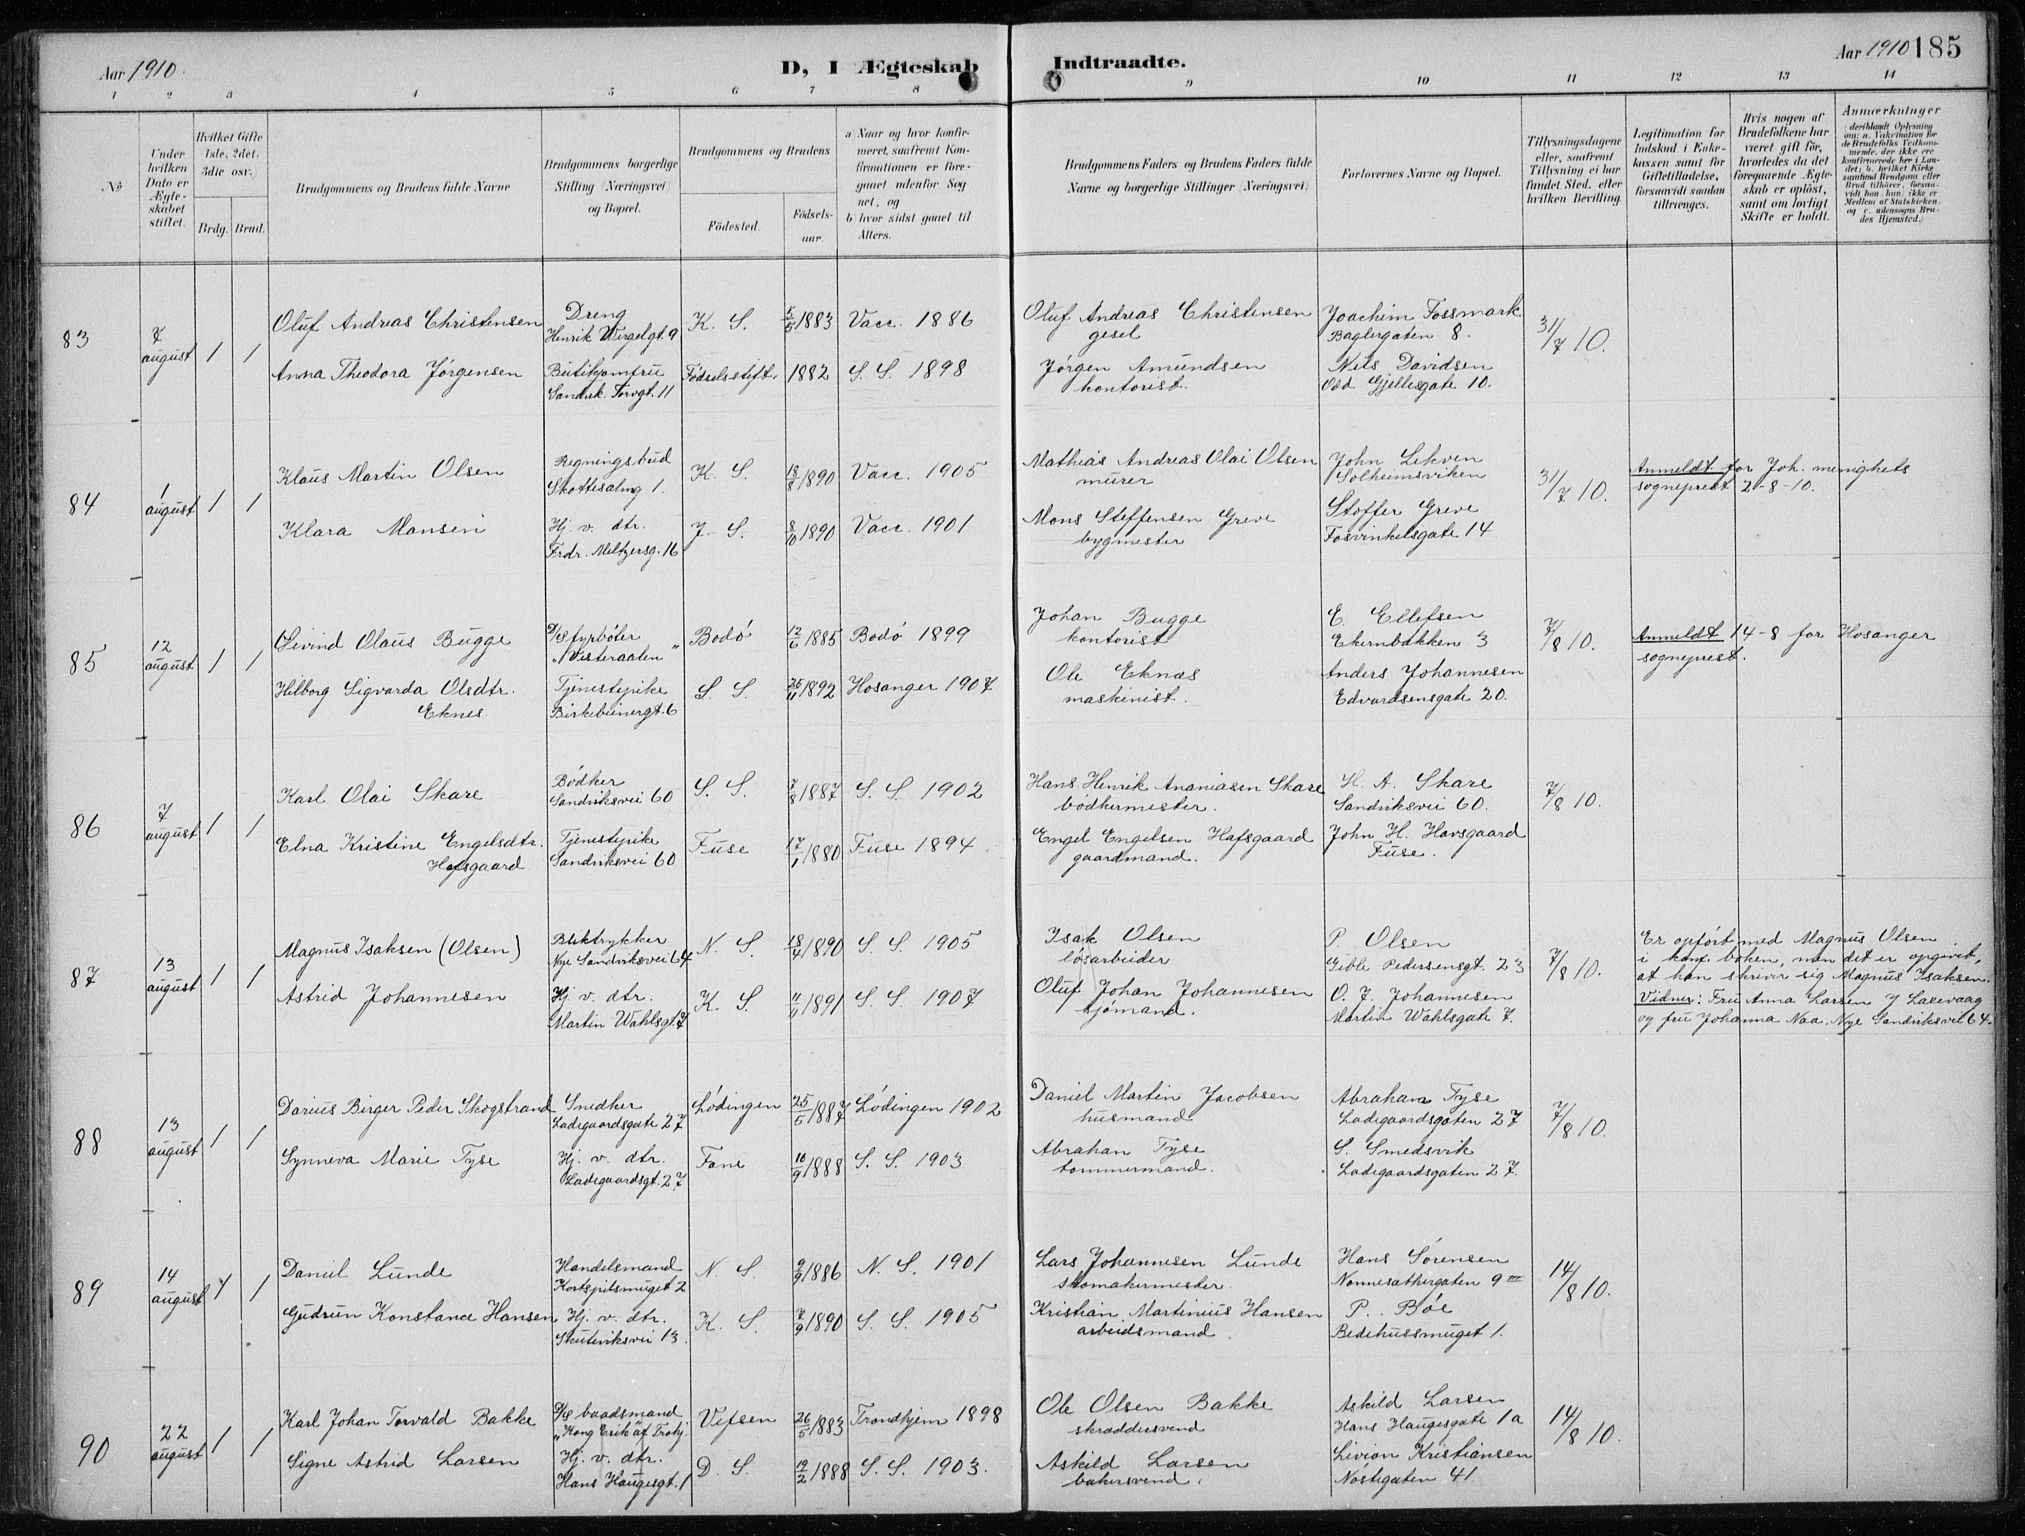 Aar 1910.
D, I Ægteskab Indtraadte.
Aar 1910 185
1 2 3 4 5 6 7 8 9 10 11 12 13 14
No
Under hvilken Dato er Ægteskabet stiftet.
Hvilket Gifte 1ste, 2det, 3die osv.)
Brdg. Brud.
Brudgommens og Brudens fulde Navne
Brudgommens borgerlige Stilling (Næringsvei) og Bopæl.
Brudgommens og Brudens
Födested.
Födsels-aar.
a) Naar og hvor konfirmeret, saafremt Konfirmationen er foregaaet udenfor Sognet, og
b) hvor sidst gaaet til Alters.
Brudgommens Faders og Brudens Faders fulde Navne og borgerlige Stillinger (Næringsvei)
Forlovernes Navne og Bopæl.
Tillysningsdagene eller, saafremt Tillysning ei har fundet Sted, efter hvilken Bevilling.
Legitimation for Indskud i Enkekassen samt for Giftetilladelse, forsaavidt saadan tiltrænges.
Hvis nogen af Brudefolkene har været gift før, hvorledes da det foregaaende Ægteskab er opløst, samt om lovligt Skifte er holdt.
Anmærkninger
(deriblandt Oplysning om: a. Vakcination for de Brudefolks Vedkommende, der ikke ere konfirmerede her i Landet; b. hvilket Kirkesamfund Brudgom eller Brud tilhører, forsaavidt han (hun) ikke er Medlem af Statskirken, og c. udensogns Brudes Hjemsted.)
83 7 august 1 1
Oluf Andreas Christensen Dreng Henrik Wergelgt. 9 K. S. 5/5 1883 Vacc. 1886 Oluf Andreas Christensen gesel Joachim Fossmark Baglergaten 8. 31/7 10.
Anna Theodora Jørgensen Butikjomfru Sandvk. Torvgt. 11 Födselsstift. 1882 S. S. 1898 Jørgen Amundsen kontorist. Nils Davidsen Odd Gjellesgate 10.
84 1 august 1 1
Klaus Martin Olsen Regningsbud Skottesalmg 1. K. S. 18/8 1890 Vacc. 1905 Mathias Andreas Olai Olsen murer John Lekven Solheimsviken 31/7 10. Anmeldt for Joh. menighets sogneprest 2-8-10.
Klara Monsen Hj. v. dtr. Frdr. Meltzersg. 16 J. S. 8/10 1890 Vacc. 1901 Mons Steffensen Greve bygmester Stoffer Greve Fosvinkelsgate 14
85 12 august 1 1
Eivind Olaus Bugge D/S fyrbøter "Vesteraalen" Bodø 12/6 1885 Bodø 1899 Johan Bugge kontorist E. Ellefsen Ekernbakken 3 7/8 10. Anmeldt 14-8 for Hosanger sogneprest.
Hilborg Sigvarda Olsdtr. Eknes Tjenestepike Birkebeinergt. 6 S. S. 25/11 1892 Hosanger 1907 Ole Eknæs maskinist. Anders Johannesen Edvardsensgate 20.
86 7 august 1 1
Karl Olai Skare Bødker Sandviksvei 60 S. S. 7/8 1887 S. S. 1902 Hans Henrik Ananiasen Skare bødkermester. H. A. Skare Sandviksvei 60. 7/8 10.
Elna Kristine Engelsdtr. Hafsgaard Tjenestepike Sandviksvei 60 Fuse 17/1 1880 Fuse 1894. Engel Engelsen Hafsgaard gaardmand. John H. Havsgaard Fuse.
87 13 august 1 1
Magnus Isaksen (Olsen) Bliktrykker Nye Sandviksvei 64 N. S. 18/4 1890 S. S. 1905 Isak Olsen løsarbeider P. Olsen Gible Pedersensgt. 23 7/8 10. Er opført med Magnus Olsen i konf. boken, men det er opgivet, at han skriver sig Magnus Isaksen.
Astrid Johannesen Hj. v. dtr. Martin Wahlsgt. 7 K. S. 11/11 1891 S. S. 1907 Oluf Johan Johannesen sjømand. O. J. Johannesen Martin Wahlsgate 7. Vidner: Fru Anna Larsen, Laxevaag og fru Johanna Naa, Nye Sandviksvei 64.
88 13 august 1 1
Darius Birger Peder Skogstrand Snedker Ladegaardsgate 27 Lødingen 25/5 1887 Lødingen 1902 Daniel Martin Jacobsen husmand Abraham Tyse Ladegaardsgaten 27 7/8 10.
Synneva Marie Tyse Hj. v. dtr. Ladegaardsgt. 27. Fane 10/9 1888 S. S. 1903 Abrahan Tyse tømmermand. S. Smedsvik Ladegaardsgaten 27.
89 14 august 1 1
Daniel Lunde Handelsmand Kortspilsmuget 2 N. S. 9/9 1886 N. S. 1901 Lars Johannesen Lunde skomakermester. Hans Sørensen Nonnesættergaten 9 III 14/8 10.
Gudrun Konstance Hansen Hj. v. dtr. Skuteviksvei 13. K. S. 7/9 1890 S. S. 1905 Kristian Martinius Hansen arbeidsmand. P. Bøe Bedehussmuget 1.
90 22 august 1 1
Karl Johan Torvald Bakke D/S baadsmand "Kong Erik" af Trohj. Vefsen 26/5 1883 Trondhjem 1898 Ole Olsen Bakke skræddersvend Askild Larsen Hans Haugesgate 1a 14/8 10.
Signe Astrid Larsen Hj. v. dtr. Hans Haugesgt. 1 D. S. 12/2 1888 S. S. 1903. Askild Larsen bakersvend. Livion Kristiansen Nostegaten 41